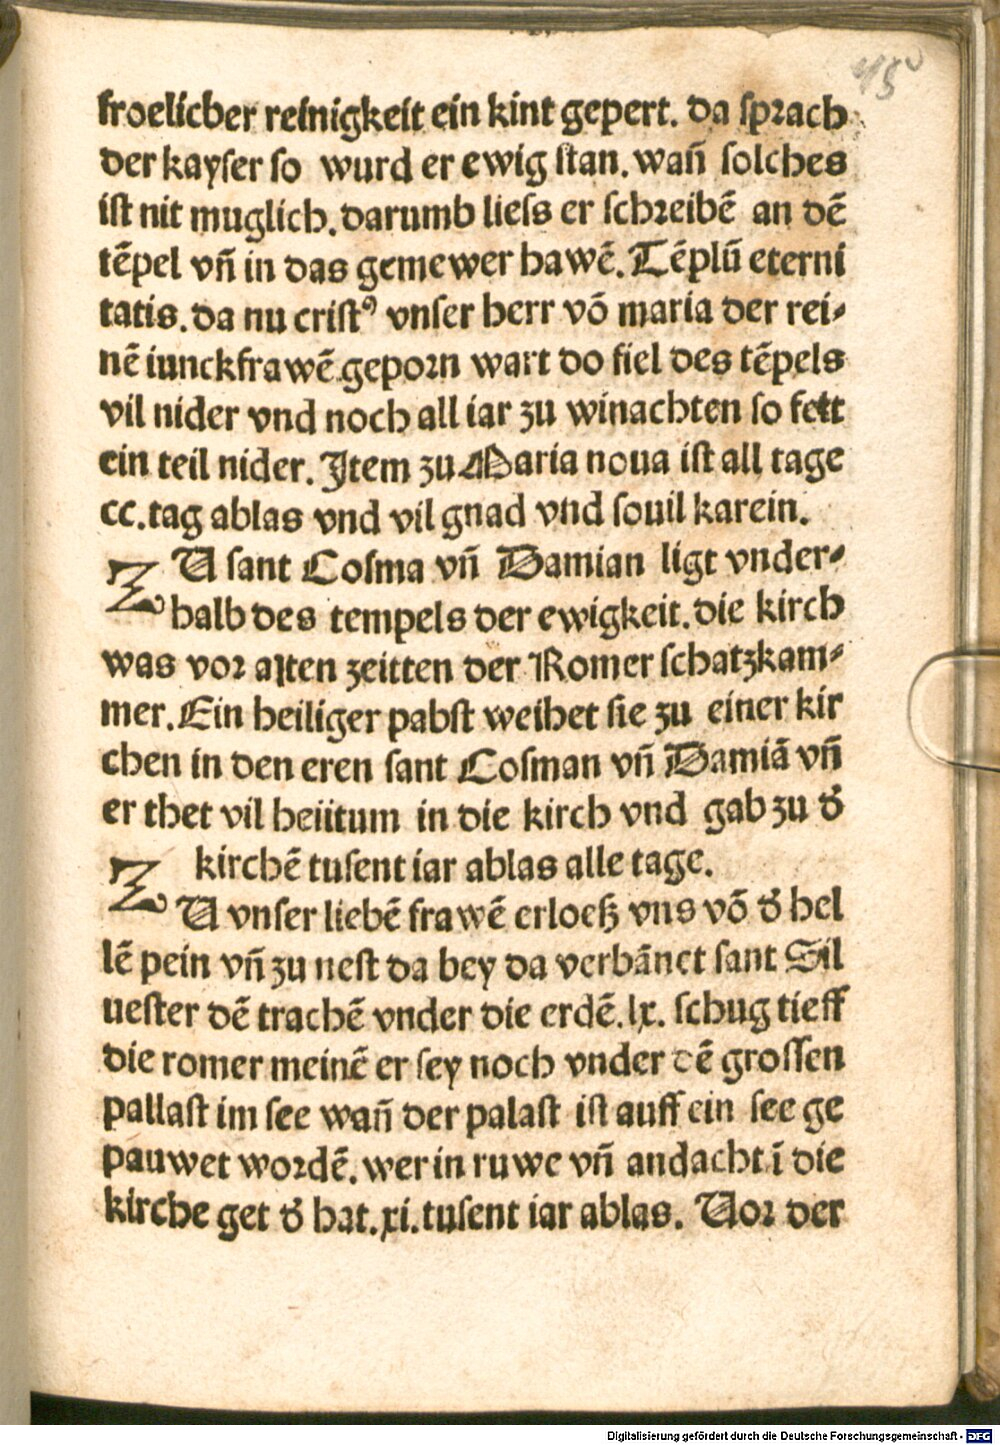 45
froelicher reinigkeit ein kint gepert. da sprach
der kayser so wurd er ewig stan. wañ solches
ist nit muglich. darumb liess er schreibẽ an dẽ
tẽpel vñ in das gemewer hawẽ. Tẽplũ eterni
tatis. da nu cristꝰ vnser herr võ maria der rei⸗
nẽ iunckfrawẽ geporn wart do fiel des tẽpels
vil nider vnd noch all iar zu winachten so fett
ein teil nider. Item zu Maria noua ist all tage
cc. tag ablas vnd vil gnad vnd souil karein.
ZU sant Cosma vñ Damian ligt vnder⸗
halb des tempels der ewigkeit. die kirch
was vor alten zeitten der Romer schatzkam⸗
mer. Ein heiliger pabst weihet sie zu einer kir
chen in den eren sant Cosman vñ Damiã vñ
er thet vil heiitum in die kirch vnd gab zu d̕
kirchẽ tusent iar ablas alle tage.
ZU vnser liebẽ frawẽ erloeß vns võ d̕ hel
lẽ pein vñ zu nest da bey da verbãnet sant Sil
uester dẽ trachẽ vnder die erdẽ. lx. schug tieff
die romer meinẽ er sey noch vnder dẽ grossen
pallast im see wañ der palast ist auff ein see ge
pauwet wordẽ. wer in ruwe vñ andacht ĩ die
kirche get d̕ hat. xi. tusent iar ablas. Vor der
Digitalisierung gefördert durch die Deutsche Forschungsgemeinschaft - DFG